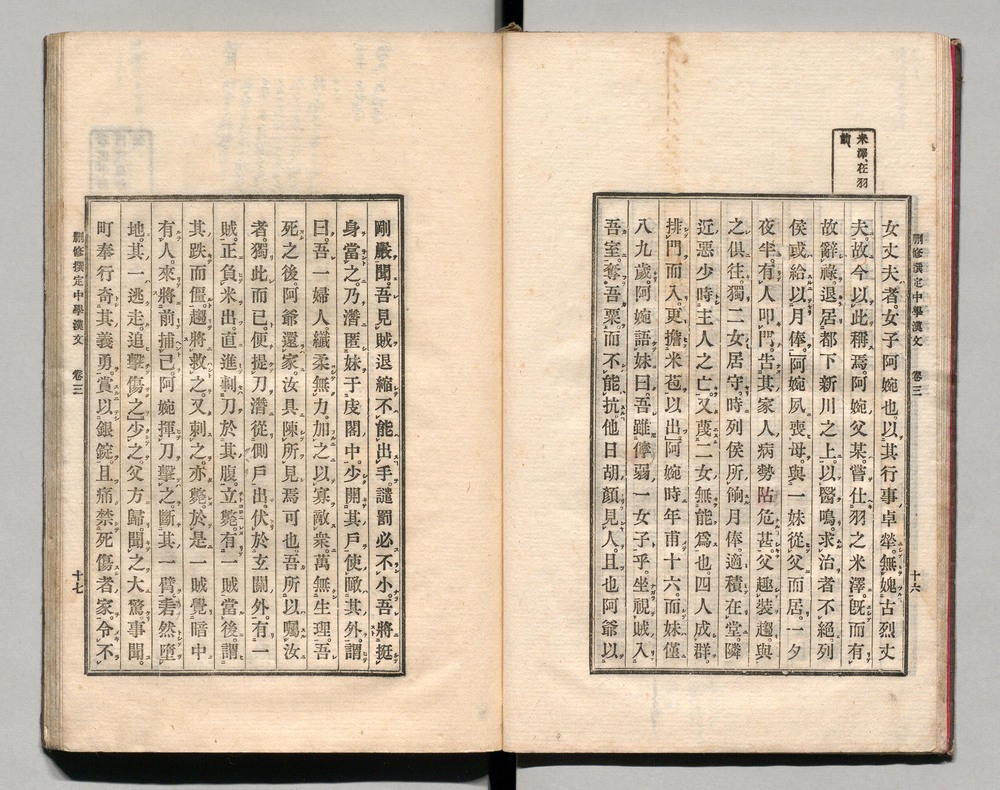 米澤、在羽
前、
刪修撰定中學漢文 卷三 十六
女丈夫者。女子阿婉也。以其行事卓犖。無媿古烈丈
夫。故今以此稱焉。阿婉父某。嘗仕羽之米澤。旣而有
故辭祿。退居都下新川之上。以醫鳴。求治者不絕。列
侯或給以月俸。」阿婉夙喪母。與一妹從父而居。一夕
夜半。有人叩門。告其家人病勢阽危甚。父趣裝趨。與
之俱往。獨二女居守。時列侯所餉月俸。適積在堂。隣
近惡少。時主人之亡。又蔑二女無能爲也。四人成群。
排門而入。更擔米苞以出。」阿婉時年甫十六。而妹僅
八九歲。阿婉語妹曰。吾雖孱弱一女子乎。坐視賊入
吾室。奪吾粟。而不能抗。他日胡顏見人。且也阿爺以
剛嚴聞。吾見賊退縮不能出手。譴罰必不小。吾將挺
身當之。乃潛匿妹于庋閣中。少開其戶。使瞰其外。謂
曰。吾一婦人。纖柔無力。加之以寡敵衆。萬無生理。吾
死之後。阿爺還家。汝具陳所見焉可也。吾所以囑汝
者。獨此而已。便提刀潛從側戶出。伏於玄關外。有一
賊。正負米出。直進刺刀於其腹。立斃。有一賊當後。謂
其跌而僵。趨將救之。又刺之。亦斃。於是一賊覺暗中
有人。來將前捕己。阿婉揮刀擊之。斷其一臂。砉然墮
地。其一逃走。追擊傷之。少之父方歸。聞之大驚。事聞。
町奉行奇其義勇。賞以銀錠。且痛禁死傷者家。令不
刪修撰定中學漢文 卷三 十七